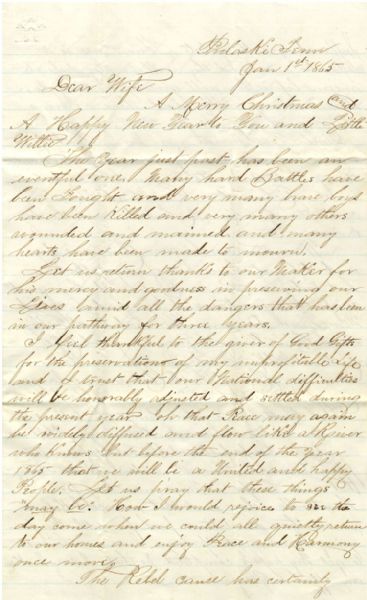 Pulaski Tenn
Jan 1st 1865
Dear Wife
A Merry Christmas and
A Happy New Year to You and Little
Willie
The Year just past has been an
eventful one. Many hard Battles have
been Fought and very many brave boys
have been killed and very many others
wounded and maimed and many
hearts have been made to mourn.
Let us return thanks to our Maker for
his mercy and goodness in preserving our
Lives amid all the dangers that has been
in our pathway for three years.
I feel thankful to the giver of Good Gifts
for the preservation of my unprofitable life
and I trust that our National difficulties
will be honorably adjusted and settled during
the present year oh that Peace may again
be widely diffused and flow like a River
who knows but before the end of the year
1865 that we will be a United and happy
People. Let us pray that these things
may be. How I would rejoice to see the
day come when we could all quietly return
to our homes and enjoy Peace and Harmony
once more.
The Rebel cause has certainly